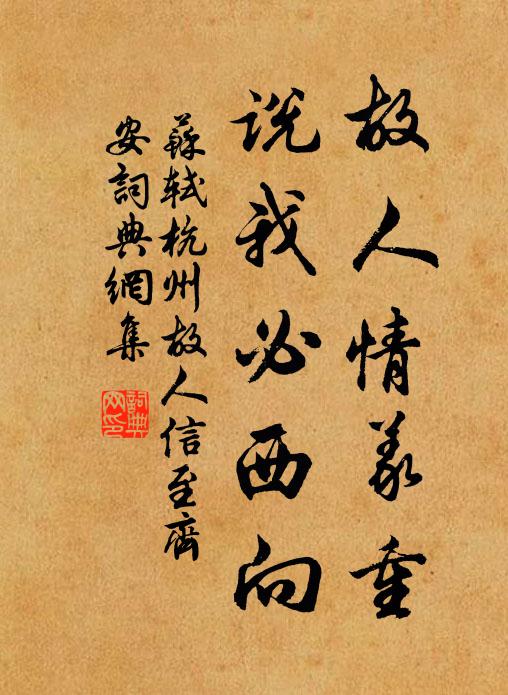 故人情義重
說我必西向
蘇軾杭州故人信至齊
安詞典網集
詞典
网印